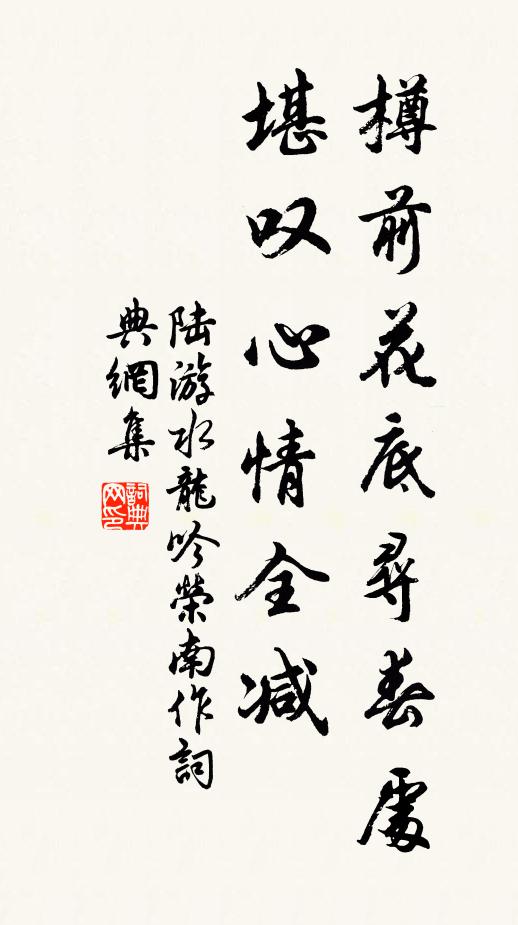 樽前花底尋春處
堪叹心情全减
陆游水龍吟榮南作詞
典網集
詞典
网印